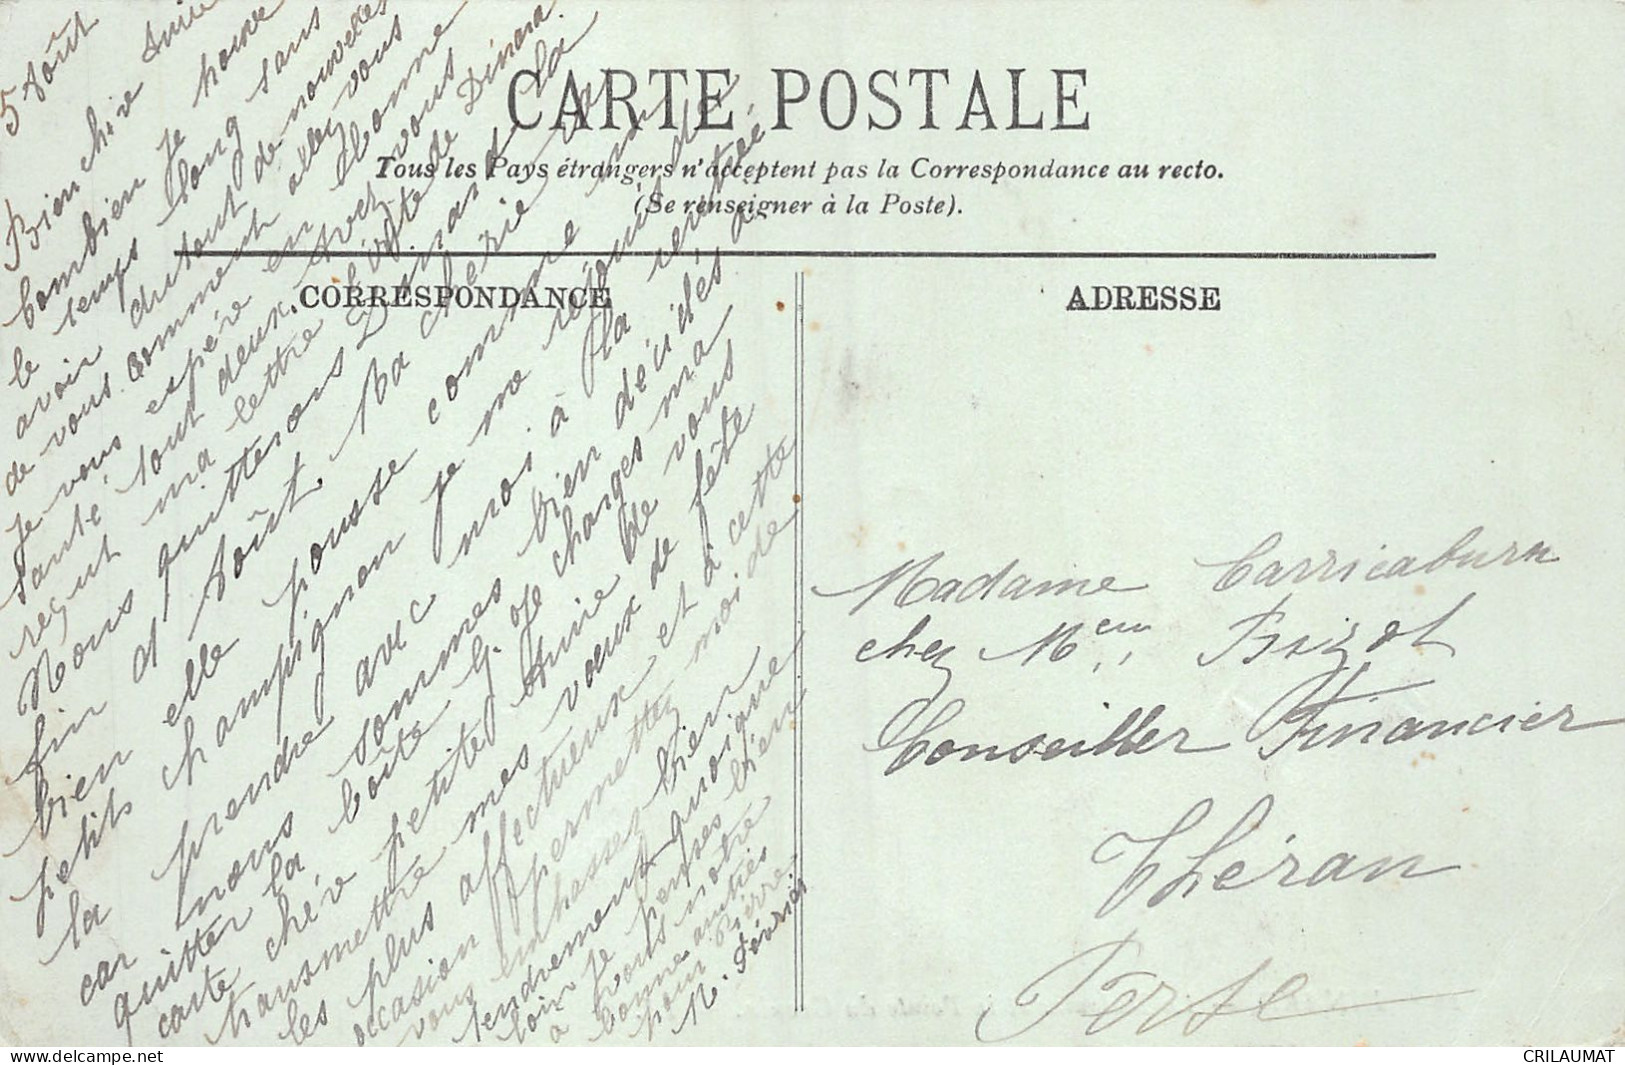 CARTE POSTALE
Tous les Pays étrangers n'acceptent pas la Correspondance au recto.
(Se renseigner à la Poste).
CORRESPONDANCE
ADRESSE
5 Août
Bien chère Amie
combien je trouve
le temps long sans
avoir du tout de nouvelles
de vous. Comment allez vous
je vous espère en bonne
santé tout deux. Avez vous
reçut ma lettre de Dinard
Nous quitterons Dinard la
fin d'Août. Ma chérie va
bien elle pousse comme un
petits champignon je me réjouit de
la prendre avec moi à la rentrée
car nous sommes bien décidés à
quitter la boîte G. Je charges ma
carte chère petite Amie de vous
transmettre mes vœux de fête
les plus affectueux et à cette
occasion permettez moi de
vous embrasser bien
tendrement quoique
loin je penses bien
à vous notre
bonne amitiés
pour Pierre
M. Février
Madame Carricaburu
chez Mr Bizot
Conseiller Financier
Théran
Perse
CRILAUMAT